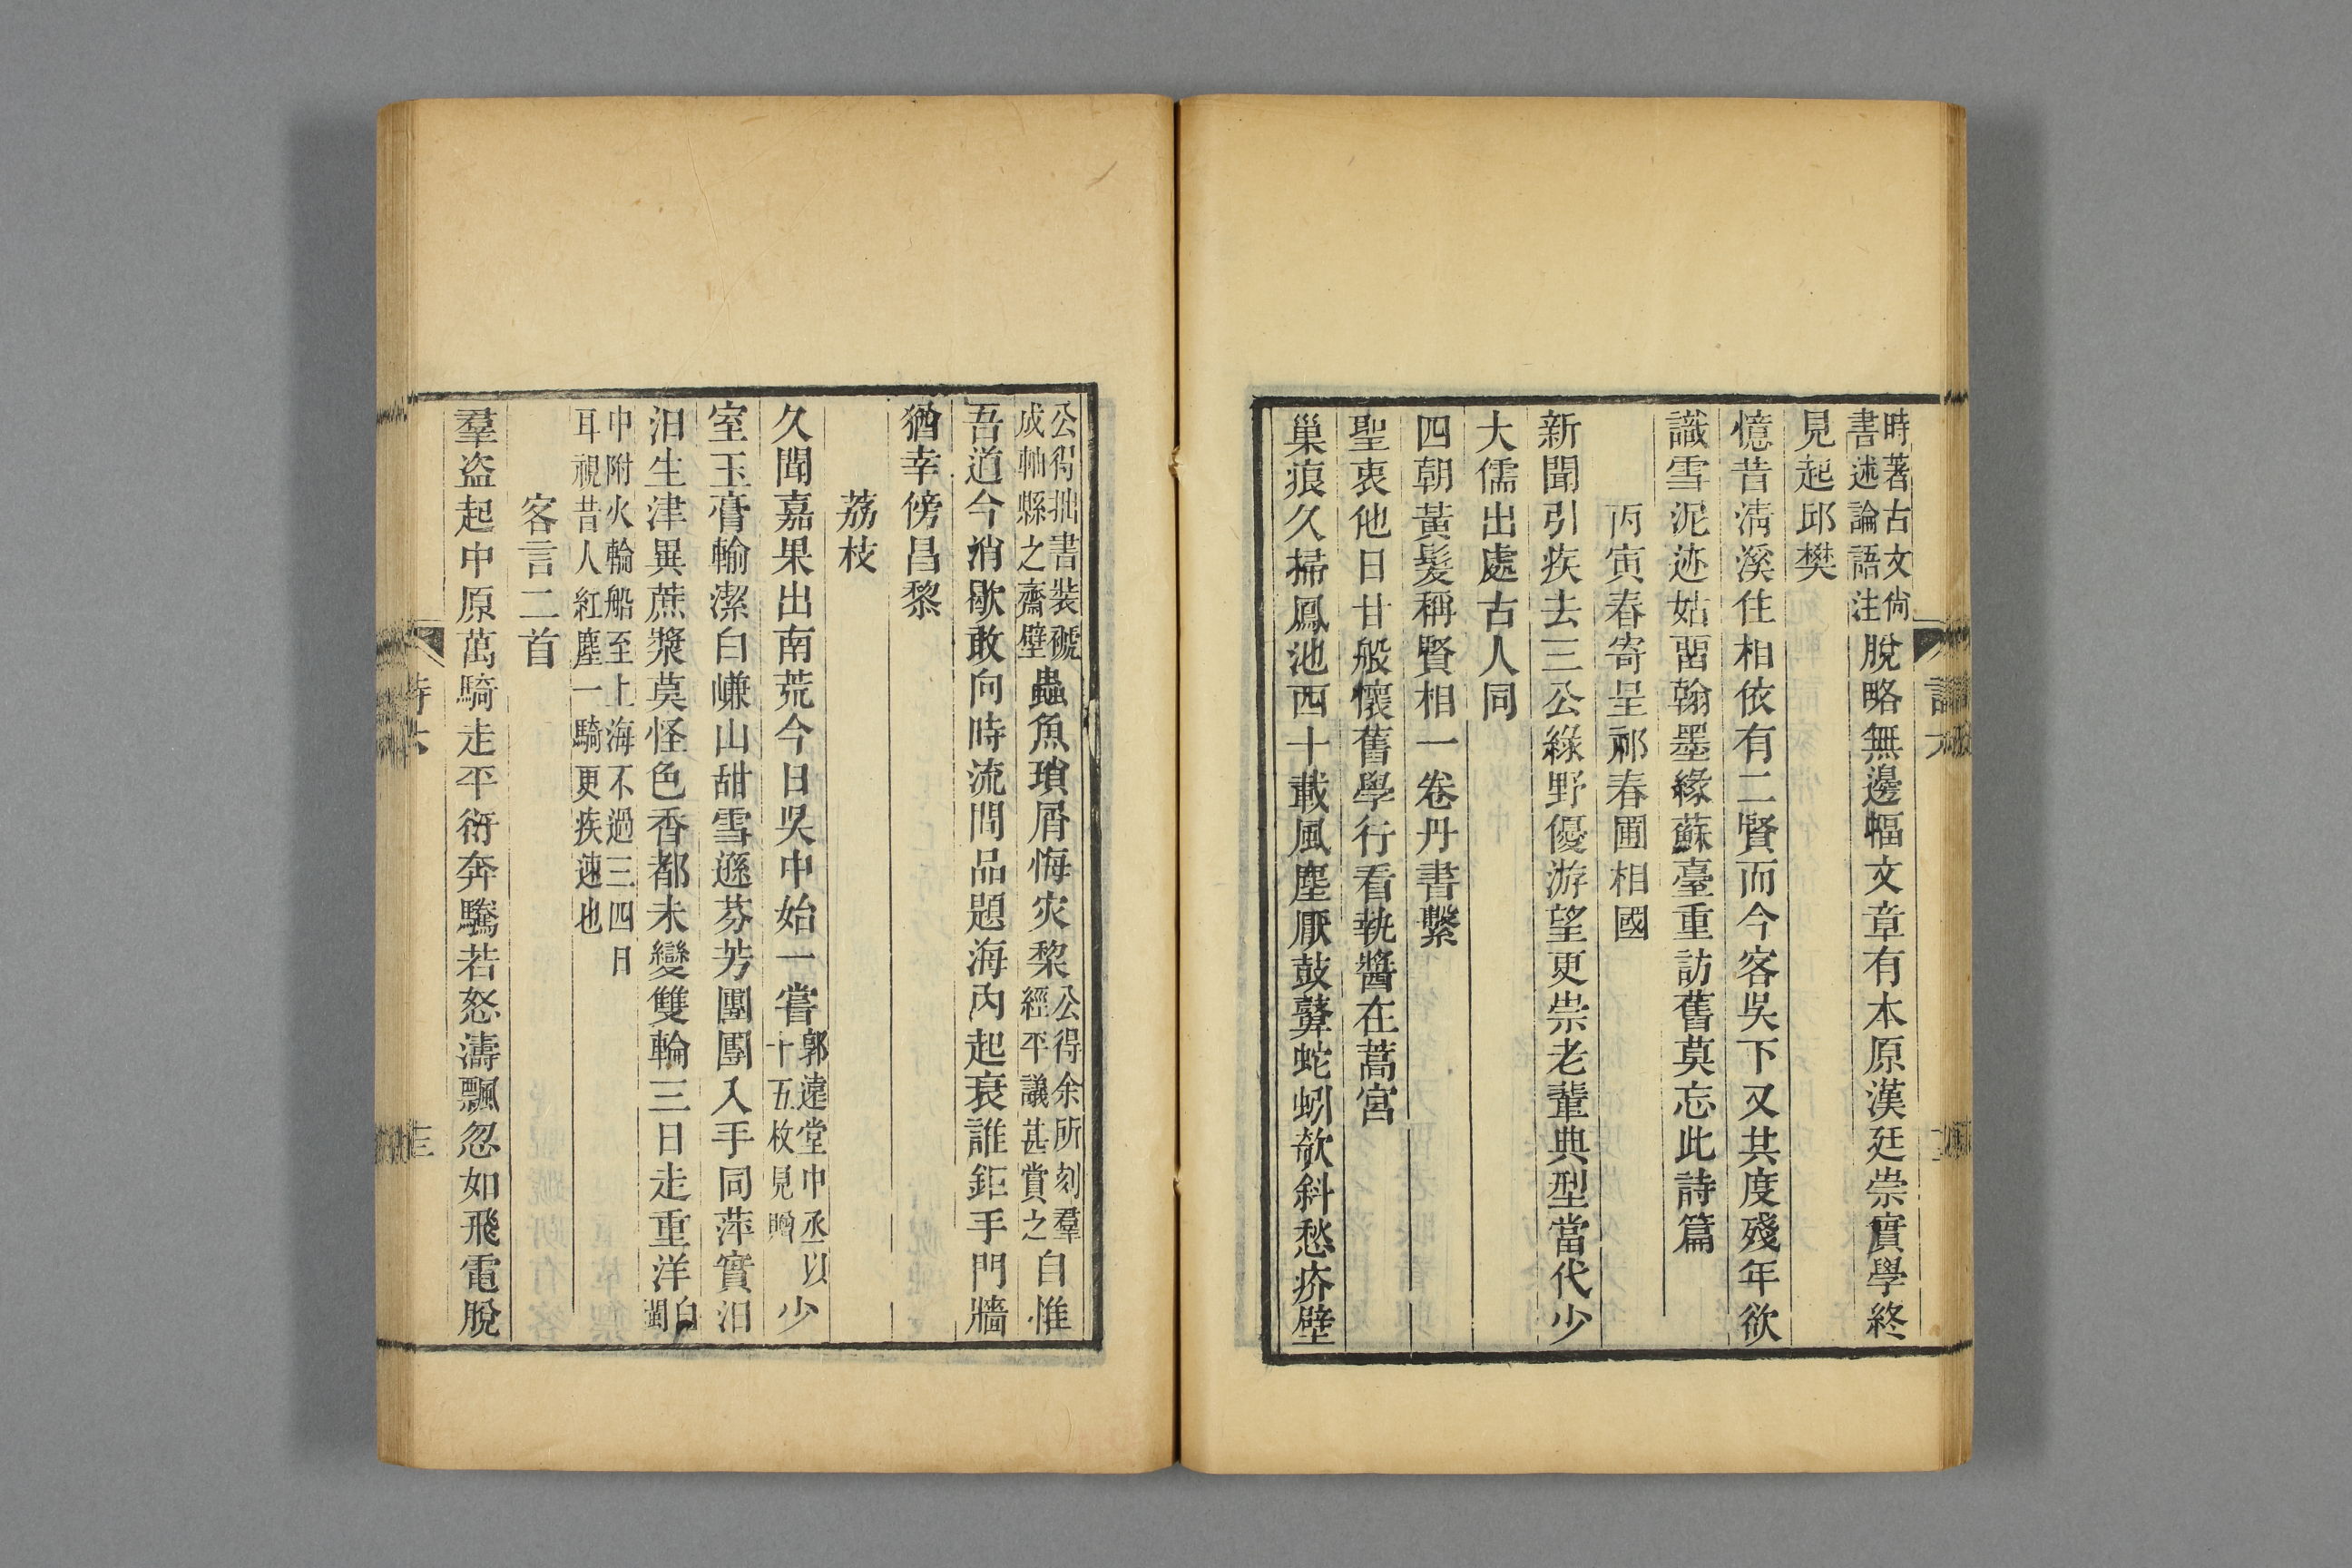 時著古文尙
書述論語注
脫略無邊幅文章有本原漢廷崇實學終
見起邱樊
憶昔淸溪住相依有二賢而今客吳下又共度殘年欲
識雪泥迹姑留翰墨緣蘇臺重訪舊莫忘此詩篇
丙寅春寄呈祁春圃相國
新聞引疾去三公綠野優游望更崇老輩典型當代少
大儒出處古人同
四朝黃髮稱賢相一卷丹書繫
聖衷他日甘般懷舊學行看執醬在蒿宮
巢痕久掃鳳池西十載風塵厭鼓鼙蛇蚓欹斜愁疥壁
公得拙書裝褫
成軸縣之齋壁
蟲魚瑣屑悔灾棃
公得余所刻羣
經平議甚賞之
自惟
吾道今消歇敢向時流問品題海內起衰誰鉅手門牆
猶幸傍昌黎
荔枝
久聞嘉果出南荒今日吳中始一嘗
郭遠堂中丞以
十五枚見贈
少
室玉膏輸潔白㠗山甜雪遜芬芳團團入手同萍實汨
汨生津異蔗漿莫怪色香都未變雙輪三日走重洋
自
閩
中附火輪船至上海不過三四日
耳視昔人紅塵一騎更疾速也
客言二首
羣盜起中原萬騎走平衍奔騰若怒濤飄忽如飛電脫
詩六